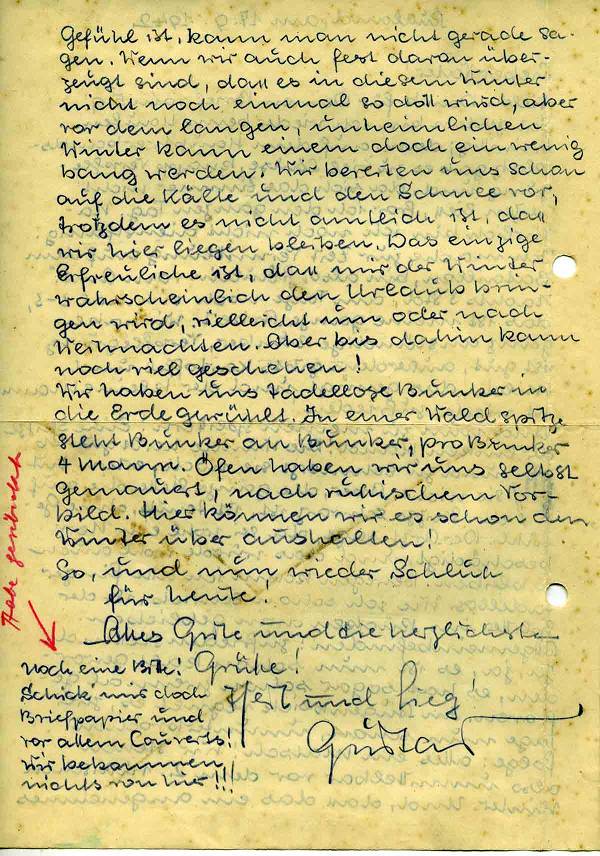 Gefühl ist, kann man nicht gerade sa-
gen. Wenn wir auch fest daran über-
zeugt sind, daß es in diesem Winter
nicht noch einmal so doll wird, aber
vor dem langen, unheimlichen
Winter kann einem doch ein wenig
bang werden. Wir bereiten uns schon
auf die Kälte und den Schnee vor,
trotzdem es nicht amtlich ist, daß
wir hier liegen bleiben. Das einzige
Erfreuliche ist, daß mir der Winter
wahrscheinlich den Urlaub brin-
gen wird, vielleicht um oder nach
Weihnachten. Aber bis dahin kann
noch viel geschehen!
Wir haben uns tadellose Bunker in
die Erde gewühlt. In einer Waldspitze
steht Bunker an Bunker, pro Bunker
4 Mann. Öfen haben wir uns selbst
gemauert, nach rußischem Vor-
bild. Hier können wir es schon den
Winter über aushalten!
So, und nun wieder Schluß
für heute!
Alles Gute und die herzlichsten
Grüße!
Heil und Sieg
Gustav
noch eine Bitte!
Schick mir doch
Briefpapier und
vor allem Couverts!
Wir bekommen
nichts von hier!!!
Habe geschickt